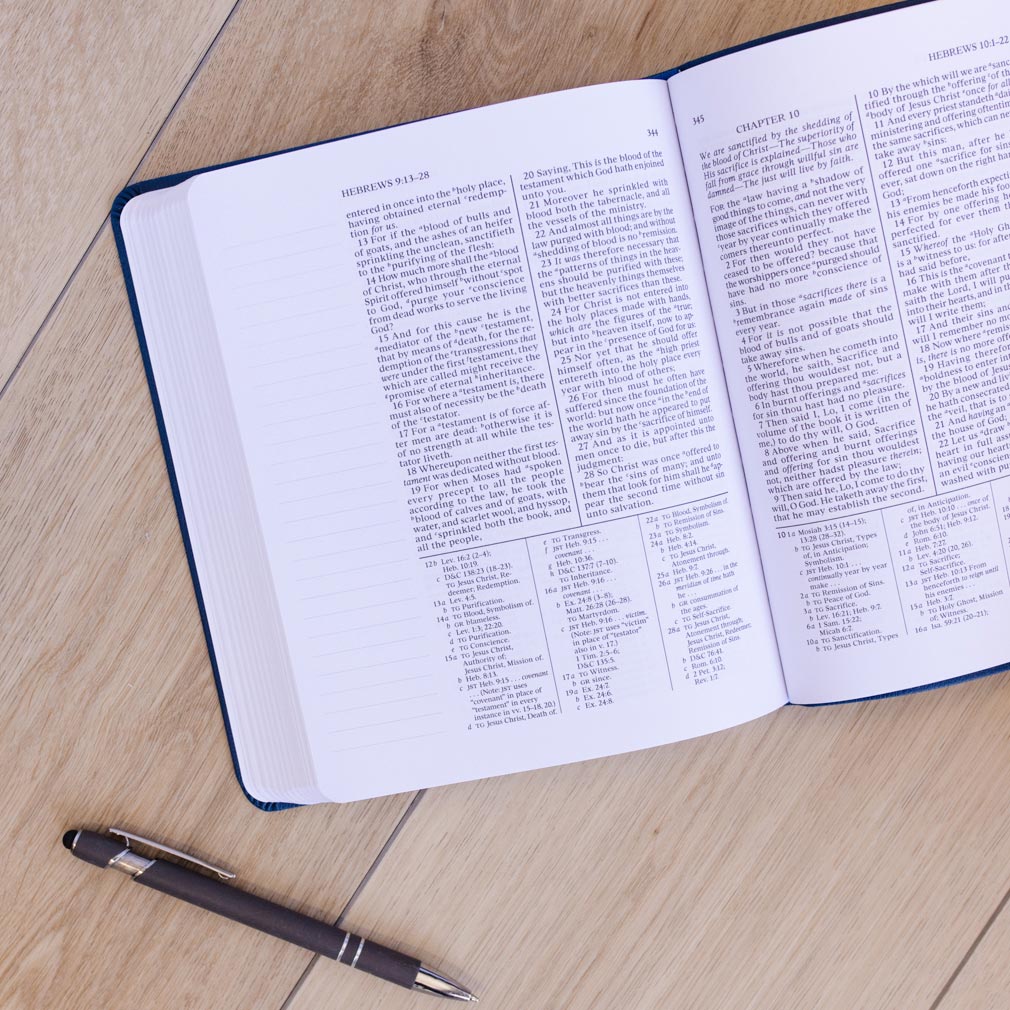 HEBREWS 9:13–28
344
entered in once into the ᵇholy place,
having obtained eternal ᶜredemp-
tion for us.
13 For if the ᵃblood of bulls and
of goats, and the ashes of an heifer
sprinkling the unclean, sanctifieth
to the ᵇpurifying of the flesh:
14 How much more shall the ᵃblood
of Christ, who through the eternal
Spirit offered himself ᵇwithout ᶜspot
to God, ᵈpurge your ᵉconscience
from dead works to serve the living
God?
15 And for this cause he is the
ᵃmediator of the ᵇnew ᶜtestament,
that by means of ᵈdeath, for the re-
demption of the ᵉtransgressions that
were under the first ᶠtestament, they
which are called might receive the
ᵍpromise of eternal ʰinheritance.
16 For where a ᵃtestament is, there
must also of necessity be the ᵇdeath
of the ᶜtestator.
17 For a ᵃtestament is of force af-
ter men are dead: ᵇotherwise it is
of no strength at all while the tes-
tator liveth.
18 Whereupon neither the first tes-
tament was dedicated without blood.
19 For when Moses had ᵃspoken
every precept to all the people
according to the law, he took the
ᵇblood of calves and of goats, with
water, and scarlet wool, and hyssop,
and ᶜsprinkled both the book, and
all the people,
20 Saying, This is the blood of the
testament which God hath enjoined
unto you.
21 Moreover he sprinkled with
blood both the tabernacle, and all
the vessels of the ministry.
22 And almost all things are by the
law purged with blood; and without
ᵃshedding of blood is no ᵇremission.
23 It was therefore necessary that
the ᵃpatterns of things in the heav-
ens should be purified with these;
but the heavenly things themselves
with better sacrifices than these.
24 For Christ is not entered into
the holy places made with hands,
which are the figures of the ᵃtrue;
but into ᵇheaven itself, now to ap-
pear in the ᶜpresence of God for us:
25 Nor yet that he should offer
himself often, as the ᵃhigh priest
entereth into the holy place every
year with blood of others;
26 For then must he often have
suffered since the foundation of the
world: but now once ᵃin the ᵇend of
the world hath he appeared to put
away sin by the ᶜsacrifice of himself.
27 And as it is appointed unto
men once to die, but after this the
judgment:
28 So Christ was once ᵃoffered to
ᵇbear the ᶜsins of many; and unto
them that look for him shall he ᵈap-
pear the second time without sin
unto salvation.
12b Lev. 16:2 (2–4);
Heb. 10:19.
c D&C 138:23 (18–23).
TG Jesus Christ, Re-
deemer; Redemption.
13a Lev. 4:5.
b TG Purification.
14a TG Blood, Symbolism of.
b GR blameless.
c Lev. 1:3; 22:20.
d TG Purification.
e TG Conscience.
15a TG Jesus Christ,
Authority of;
Jesus Christ, Mission of.
b Heb. 8:13.
c JST Heb. 9:15 . . . covenant
. . . (Note: JST uses
“covenant” in place of
“testament” in every
instance in vv. 15–18, 20.)
d TG Jesus Christ, Death of.
e TG Transgress.
f JST Heb. 9:15 . . .
covenant . . .
g Heb. 10:36.
h D&C 137:7 (7–10).
TG Inheritance.
16a JST Heb. 9:16 . . .
covenant . . .
b Ex. 24:8 (3–8);
Matt. 26:28 (26–28).
TG Martyrdom.
c JST Heb. 9:16 . . . victim.
(Note: JST uses “victim”
in place of “testator”
also in v. 17.)
1 Tim. 2:5–6;
D&C 135:5.
17a TG Witness.
b GR since.
19a Ex. 24:7.
b Ex. 24:6.
c Ex. 24:8.
22a TG Blood, Symbolism of.
b TG Remission of Sins.
23a TG Symbolism.
24a Heb. 8:2.
b Heb. 4:14.
c TG Jesus Christ,
Atonement through.
25a Heb. 9:7.
26a JST Heb. 9:26 . . . in the
meridian of time hath
he . . .
b GR consummation of
the ages.
c TG Self-Sacrifice.
28a TG Jesus Christ,
Atonement through;
Jesus Christ, Redeemer;
Remission of Sins.
b D&C 76:41.
c Rom. 6:10.
d 2 Pet. 3:12;
Rev. 1:7.
345
HEBREWS 10:1–22
CHAPTER 10
We are sanctified by the shedding of
the blood of Christ—The superiority of
His sacrifice is explained—Those who
fall from grace through willful sin are
damned—The just will live by faith.
FOR the ᵃlaw having a ᵇshadow of
good things to come, and not the very
image of the things, can never with
those sacrifices which they offered
ᶜyear by year continually make the
comers thereunto perfect.
2 For then would they not have
ceased to be offered? because that
the worshippers once ᵃpurged should
have had no more ᵇconscience of
sins.
3 But in those ᵃsacrifices there is a
ᵇremembrance again made of sins
every year.
4 For it is not possible that the
blood of bulls and of goats should
take away sins.
5 Wherefore when he cometh into
the world, he saith, Sacrifice and
offering thou wouldest not, but a
body hast thou prepared me:
6 In burnt offerings and ᵃsacrifices
for sin thou hast had no pleasure.
7 Then said I, Lo, I come (in the
volume of the book it is written of
me,) to do thy will, O God.
8 Above when he said, Sacrifice
and offering and burnt offerings
and offering for sin thou wouldest
not, neither hadst pleasure therein;
which are offered by the law;
9 Then said he, Lo, I come to do thy
will, O God. He taketh away the first,
that he may establish the second.
10 By the which will we are ᵃsanc-
tified through the ᵇoffering ᶜof the
ᵈbody of Jesus Christ ᵉonce for all.
11 And every priest standeth ᵃdai
ministering and offering oftentim
the same sacrifices, which can ne
take away ᵃsins:
12 But this man, after he
offered one ᵃsacrifice for sin
ever, sat down on the right han
God;
13 ᵃFrom henceforth expecti
his enemies be made his foo
14 For by one offering h
perfected for ever them
sanctified.
15 Whereof the ᵃHoly Gh
is a ᵇwitness to us: for afte
had said before,
16 This is the ᵃcovenant
make with them after th
saith the Lord, I will pu
into their hearts, and in
will I write them;
17 And their sins and
will I remember no m
18 Now where ᵃremis
is, there is no more off
19 Having therefor
ᵃboldness to enter in
by the blood of Jesu
20 By a new and li
he hath consecrated
the ᵃveil, that is to
21 And having an
the house of God;
22 Let us ᵃdraw
heart in full ass
having our hear
an evil ᶜconscie
washed with pu
10 1a Mosiah 3:15 (14–15);
13:28 (28–32).
b TG Jesus Christ, Types
of, in Anticipation;
Symbolism.
c JST Heb. 10:1 . . .
continually year by year
make . . .
2a TG Remission of Sins.
b TG Peace of God.
3a TG Sacrifice.
b Lev. 16:21; Heb. 9:7.
6a 1 Sam. 15:22;
Micah 6:7.
10a TG Sanctification.
b TG Jesus Christ, Types
of, in Anticipation.
c JST Heb. 10:10 . . . once of
the body of Jesus Christ.
d John 6:51; Heb. 9:12.
e Rom. 6:10.
11a Heb. 7:27.
b Lev. 4:20 (20, 26).
12a TG Sacrifice;
Self-Sacrifice.
13a JST Heb. 10:13 From
henceforth to reign until
his enemies
15a Heb. 3:7.
b TG Holy Ghost, Mission
of; Witness.
16a Isa. 59:21 (20–21);